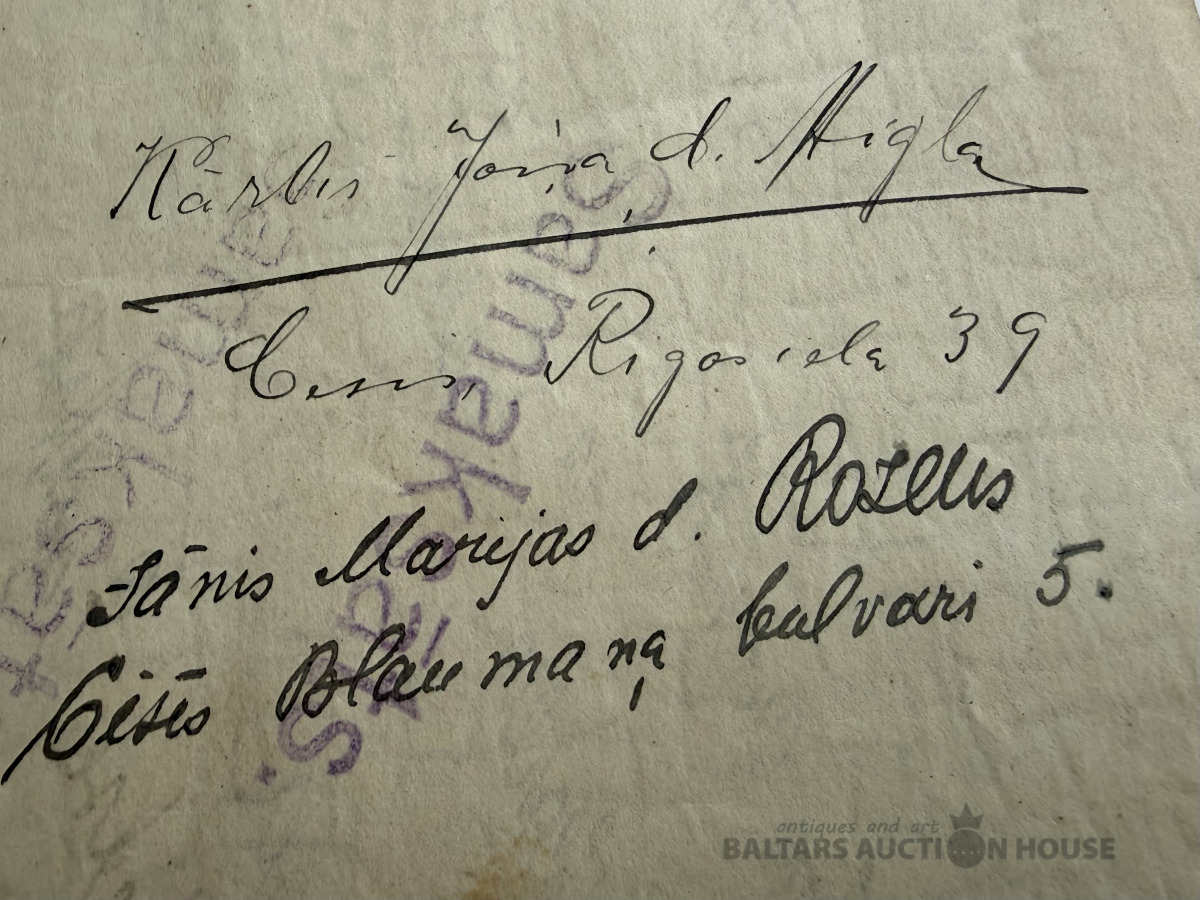 Kārlis Jāņa d. Higla
Cēsīs, Rīgasiela 39
Jānis Marijas d. Rozens
Cēsīs Blaumaņa bulvarī 5.
antiques and art
BALTARS AUCTION HOUSE